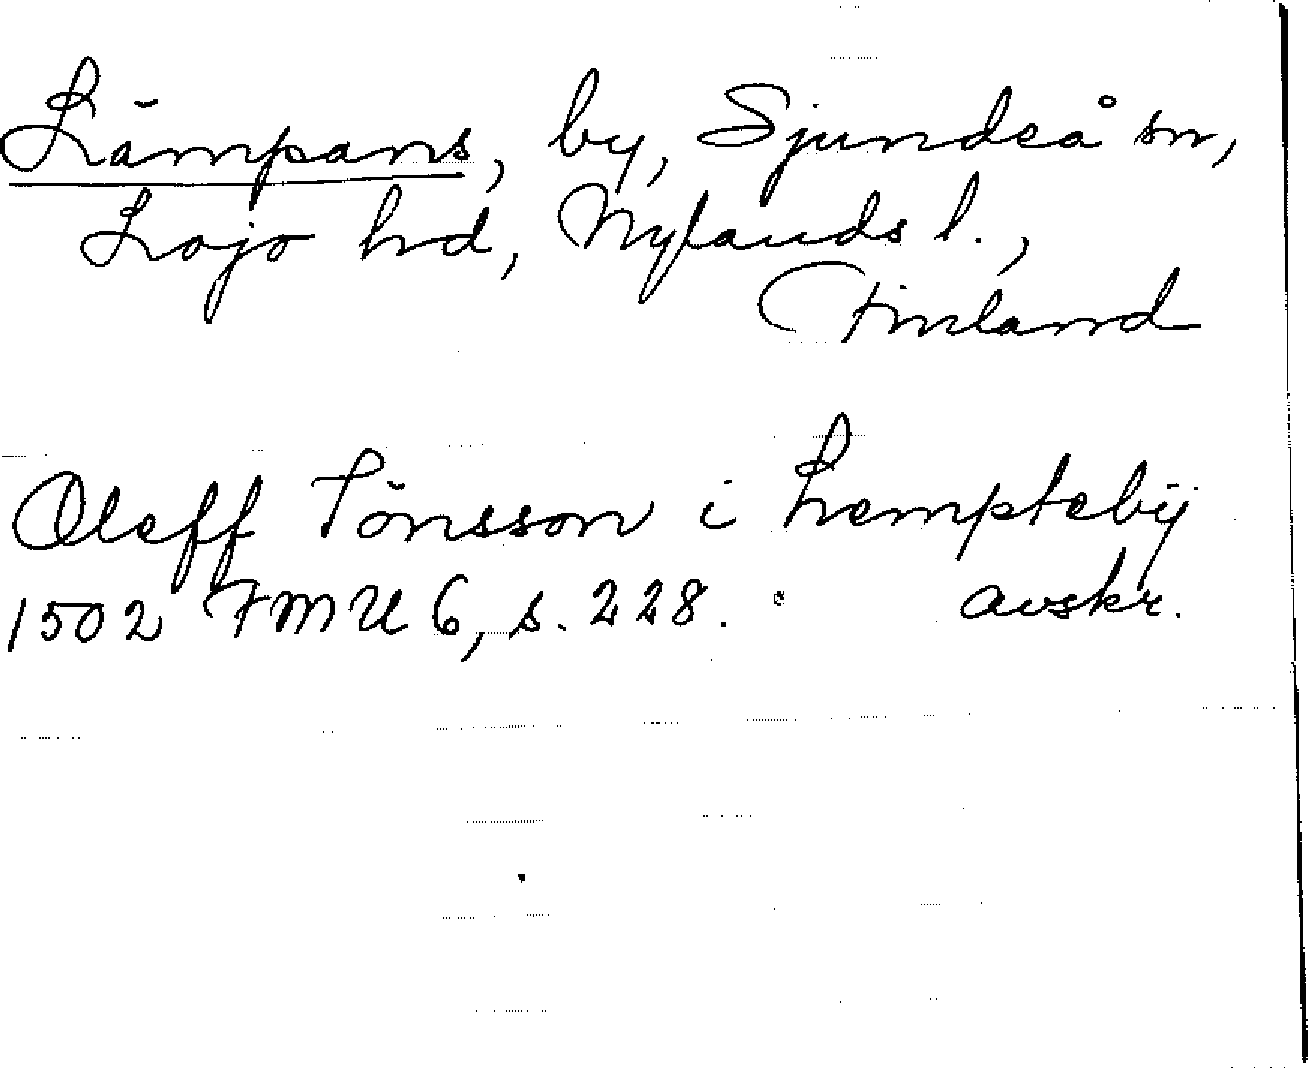 Lämpans, by, Sjundeå sn,
Lojo hd, Nylands l.,
Finland
Oleff Jönsson i Lempteby
1502 FMU 6, s. 228. avskr.